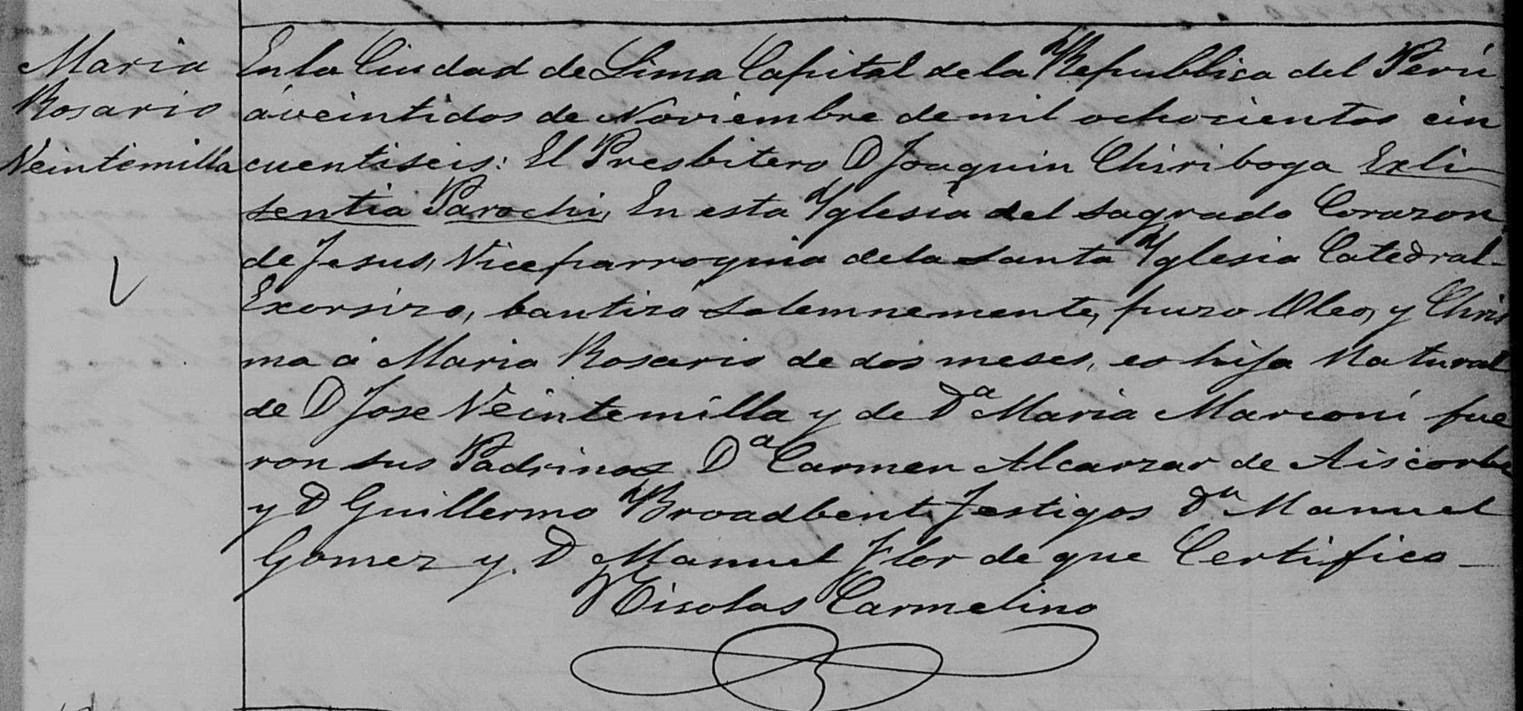 Maria
Rosario
Veintemilla
En la Ciudad de Lima Capital de la Republica del Perú
á veintidos de Noviembre de mil ochocientos cin
cuentiseis: El Presbitero D Joaquin Chiriboga Exli
sentia Parochi, En esta Yglesia del sagrado Corazon
de Jesus, Viceparroquia de la Santa Yglesia Catedral-
Exorsizo, bautizo solemnemente, puzo Oleo, y Chris
ma á Maria Rosario de dos meses, es hija Natural
de D Jose Veintemilla y de Da Maria Marconi fue
ron sus Padrinos Da Carmen Alcarzar de Aiscorbe
y D Guillermo Broadbent, Testigos Dn Manuel
Gomez y. D Manuel Flor de que Certifico-
Nicolas Carmelino